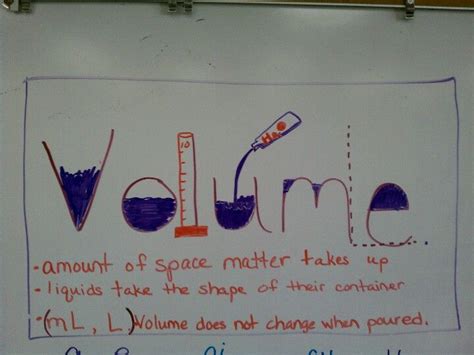 10
H₂O
Volume.
- amount of space matter takes up
- liquids take the shape of their container
- (mL, L) Volume does not change when poured.